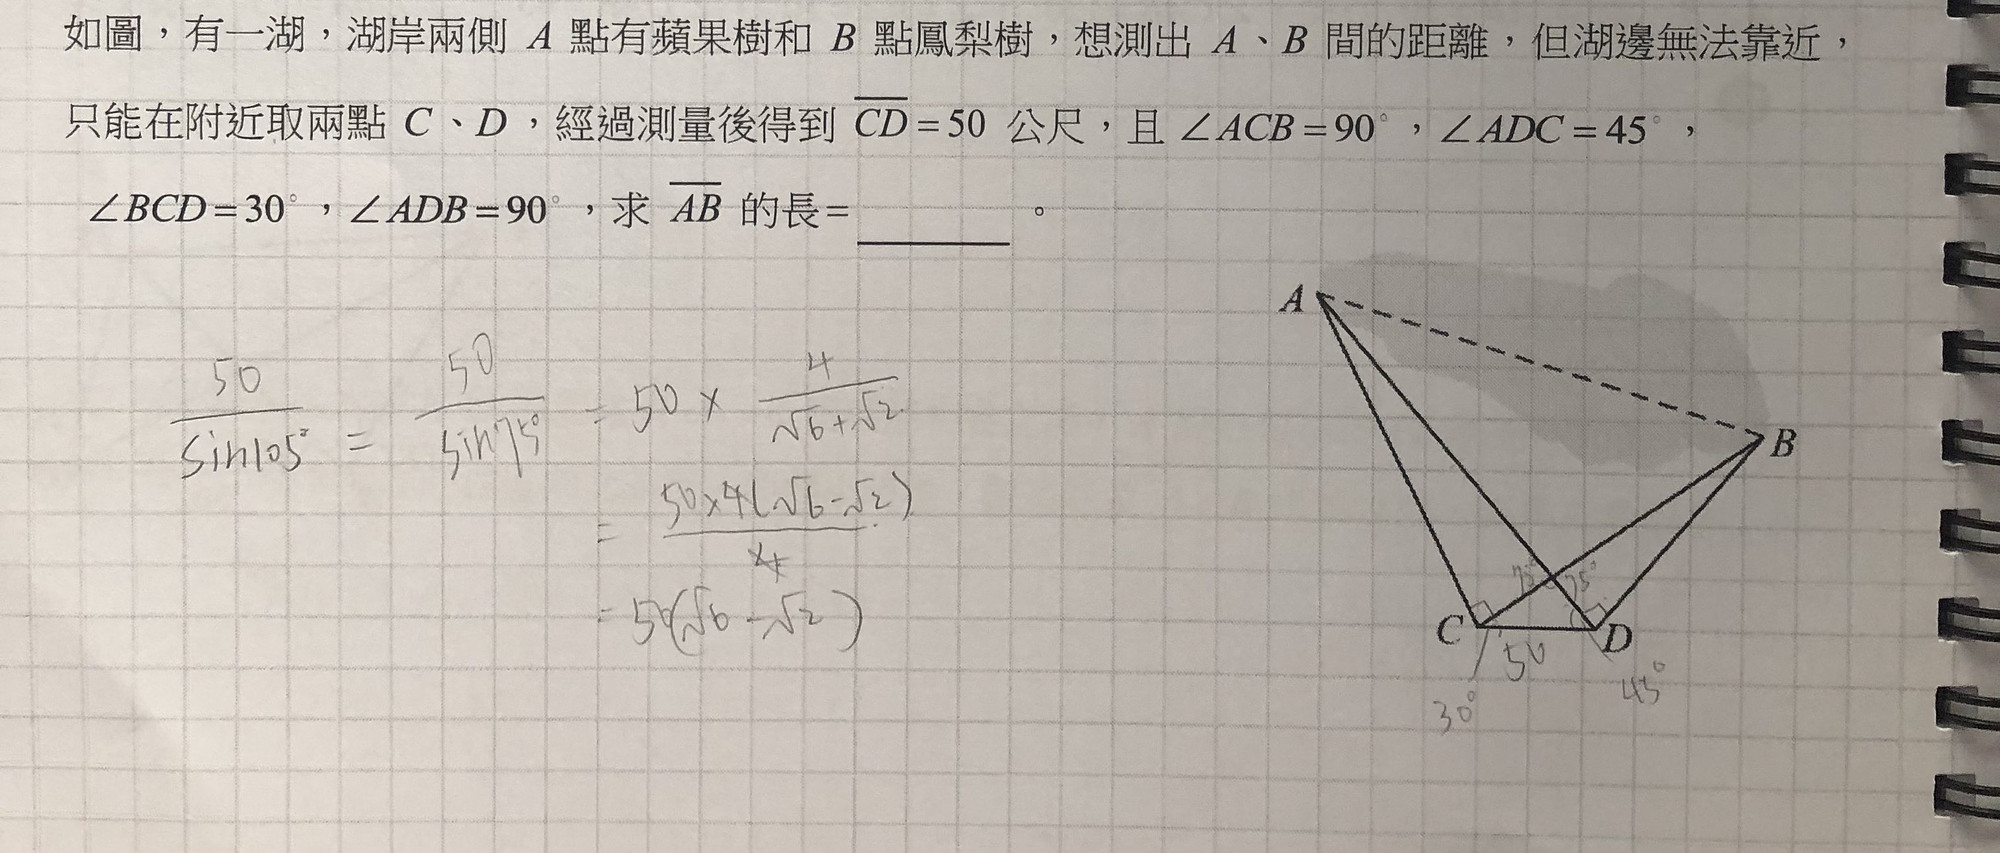 如圖，有一湖，湖岸兩側 A 點有蘋果樹和 B 點鳳梨樹，想測出 A、B 間的距離，但湖邊無法靠近，
只能在附近取兩點 C、D，經過測量後得到 \overline{CD}=50 公尺，且 ∠ACB=90°，∠ADC=45°，
∠BCD=30°，∠ADB=90°，求 \overline{AB} 的長=______。
A
B
50/sin105° = 50/sin75° = 50×4/(√6+√2)
= 50×4(√6-√2)/4
= 50(√6-√2)
75° 75°
C 50 D
30° 45°